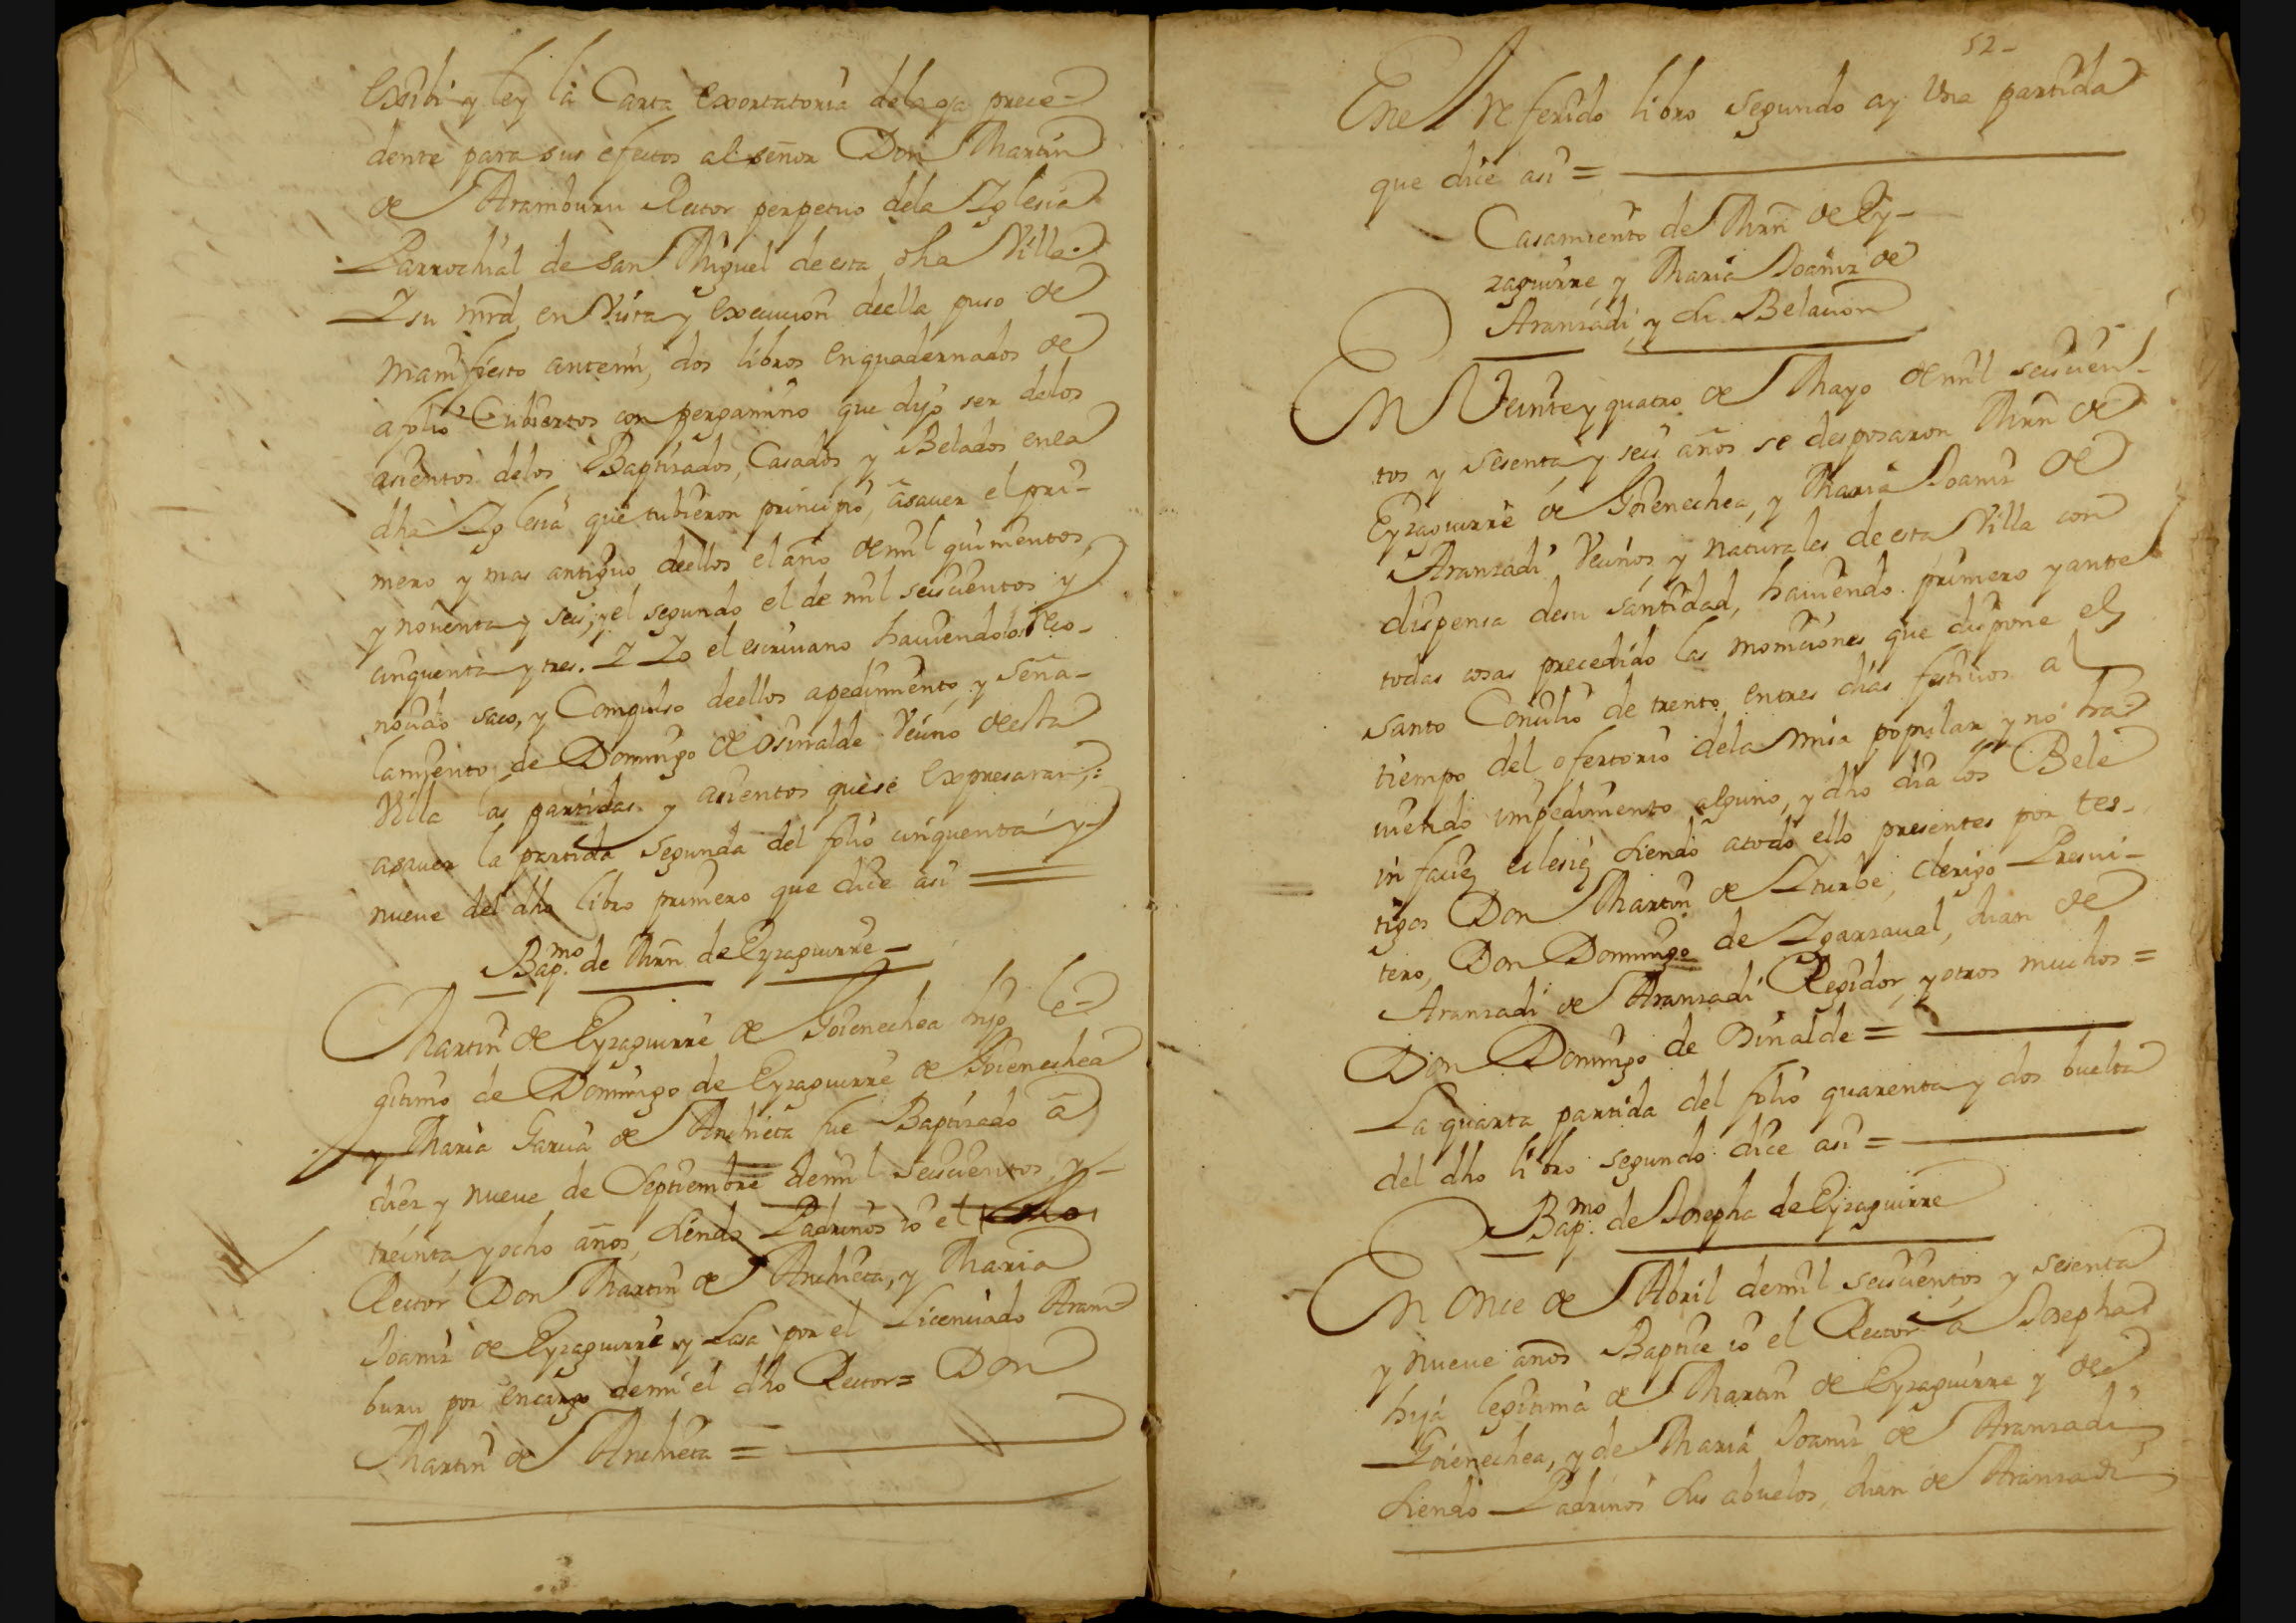 Exsibi y ley la Carta exortatoria dela oja prece-
dente para sus efectos al señor Don Martin
de Aramburu Rector perpetuo dela Iglesia
Parrochial de San Miguel de esta dha Villa.
I su mrd, en Vista y execucion deella puso de
manifiesto antemi, dos libros enquadernados de
afolio Cubiertos con pergamino que dijo ser delos
asientos delos Baptisados, Casados y Belados enla
dha Iglesia que tubieron principio, asauer el pri-
mero y mas antiguo deellos el año de mil quinientos,
y nouenta y seis; y el segundo el de mil seiscientos y
cinquenta y tres. I Io el escriuano hauiendolos reco-
nocido saco, y Compulso deellos apedimento y seña-
lamiento de Domingo de Osinalde Vecino de esta
Villa las partidas y asientos que se expresaran;:
asauer la partida segunda del folio cinquenta y
nueve del dho libro primero que dice asi =
Bap.mo de Mrn de Eyzaguirre-
Martin de Eyzaguirre de Goienechea hijo le-
gitimo de Domingo de Eyzaguirre de Goienechea
y Maria Garcia de Anchieta fue Baptisado â
diez y nueve de Septiembre de mil seiscientos, y-
treinta y ocho años, siendo Padrinos io el
Rector Don Martin de Anchieta, y Maria
Joaniz de Eyzaguirre y Lasa por el Licenciado Aram-
buru por encargo demi el dho Rector= Don
Martin de Anchieta =
52-
Enel referido libro segundo ay Una partida
que dice asi =
Casamiento de Mrn de Ey-
zaguirre y Maria Joaniz de
Aranzadi, y su Belacion
En Veinte y quatro de Mayo de mil seiscien-
tos y sesenta y seis años se desposaron Mrn de
Eyzaguirre de Goienechea, y Maria Joaniz de
Aranzadi Vecinos y naturales de esta Villa con
dispensa desu santidad, hauiendo primero y ante
todas cosas precedido las moniciones que dispone el
santo Concilio de trento entres dias festivos al
tiempo del ofertorio dela misa popular y no ha-
uiendo impedimento alguno, y dho dia los Bele
in facie eclesie siendo atodo ello presentes por tes-
tigos Don Martin de Iturbe, clerigo Presui-
tero, Don Domingo de Igarzaual, Juan de
Aranzadi de Aranzadi Regidor, y otros muchos =
Don Domingo de Osinalde =
La quarta partida del folio quarenta y dos buelta
del dho libro segundo dice asi =
Bap.mo de Josepha de Eyzaguirre
En Once de Abril de mil seiscientos y sesenta
y nueve años Baptice io el Rector â Josepha
hija legitima de Martin de Eyzaguirre y de
Goienechea, y de Maria Joaniz de Aranzadi
siendo Padrinos sus abuelos, Juan de Aranzadi